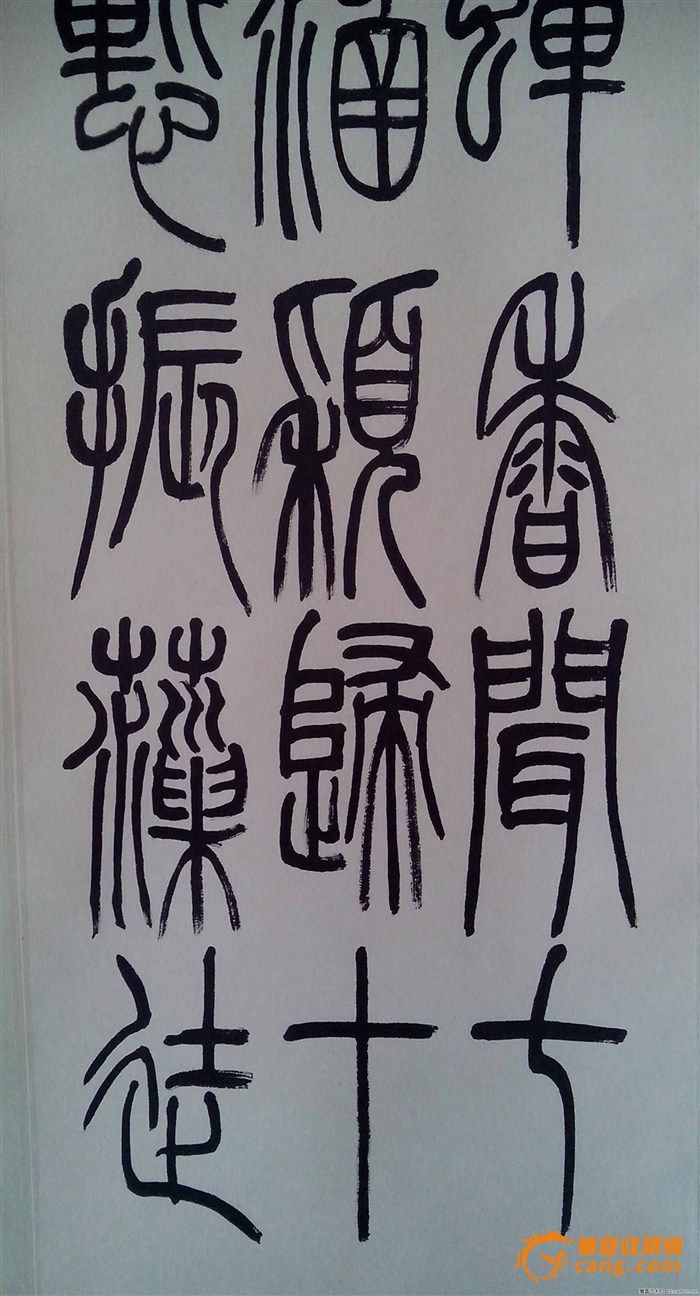 香聞七
穎歸十
振藻徒
華夏收藏網
cang.com